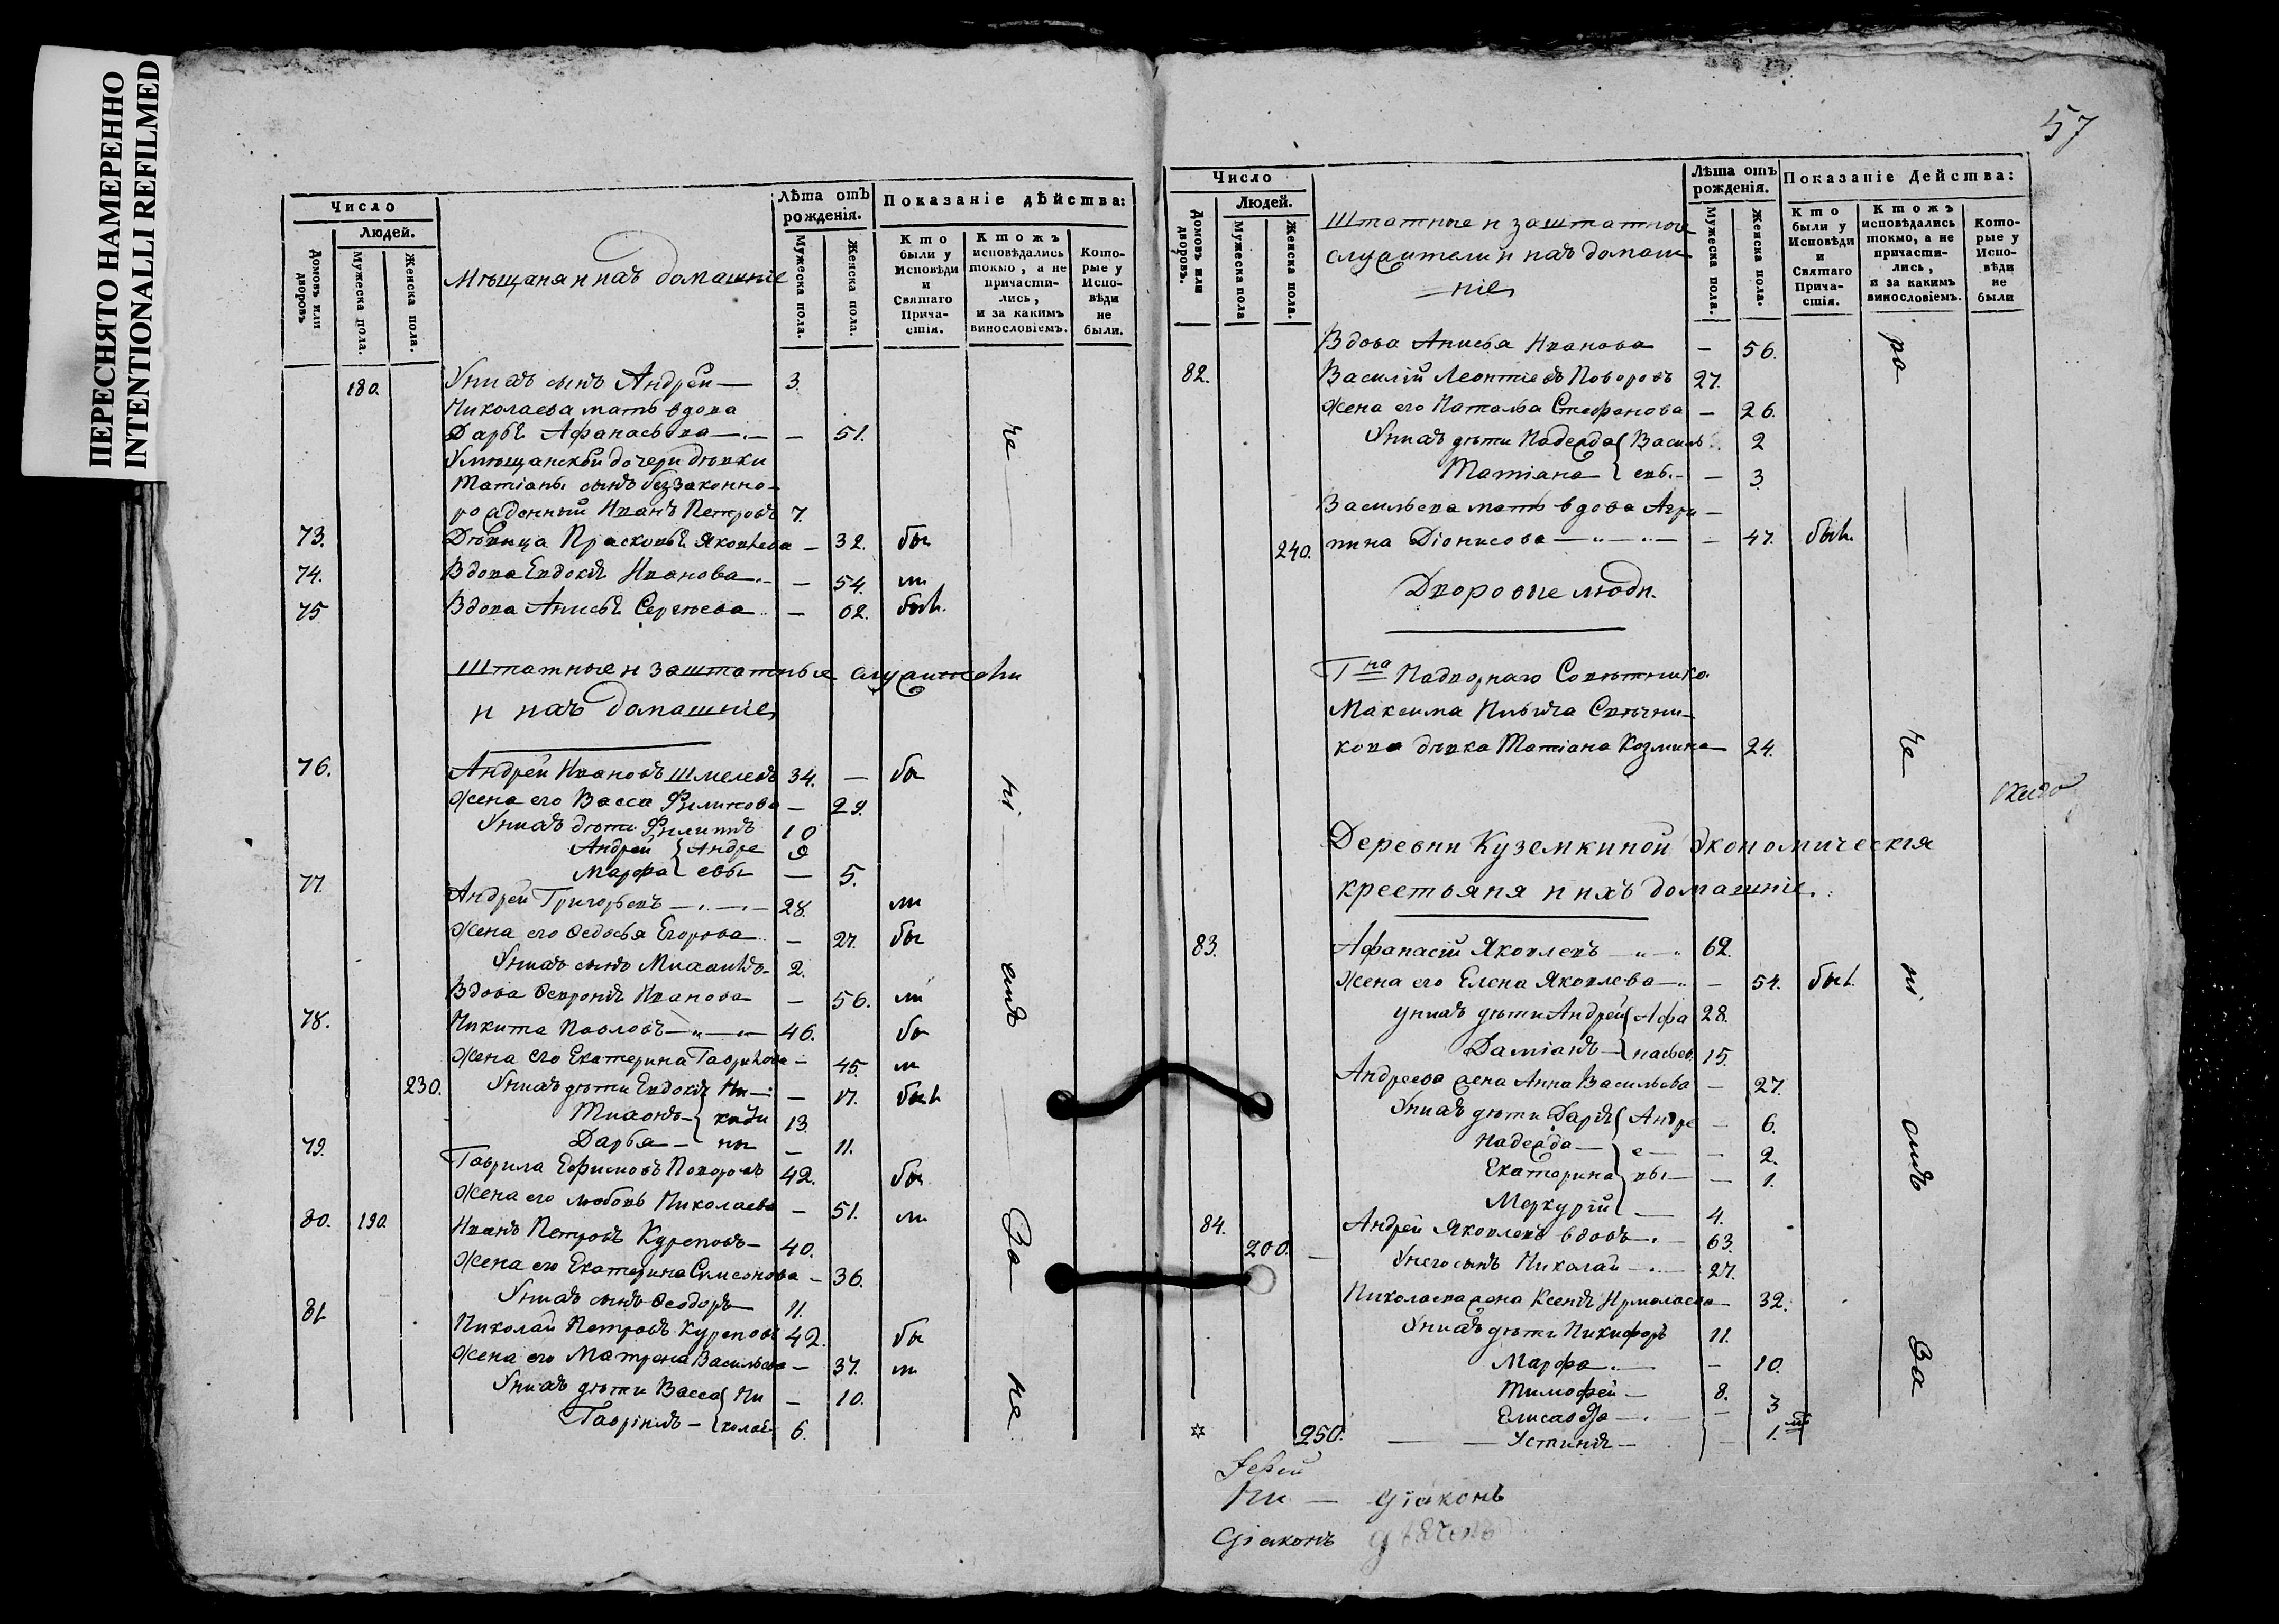 ПЕРЕСНЯТО НАМЕРЕННО
INTENTIONALLI REFILMED
Число
Людей.
Домовъ или дворовъ
Мужеска пола.
Женска пола.
Мѣщаня и ихъ домашніе
Лѣта отъ рожденія.
Мужеска пола.
Женска пола.
Показаніе дѣйства:
Кто были у Исповѣди и Святаго Прича-стія.
Ктожъ исповѣдались токмо, а не причасти-лись, и за какимъ винословіемъ.
Кото-рые у Испо-вѣди не были.
180. Унихъ сынъ Андрей — 3.
Николаева мать вдова
Дарья Афанасьева — — 51.
Умѣщанской дочери дѣвки
Татіаны сынъ беззаконно-
рожденный Иванъ Петровъ 7.
73. Дѣвица Прасковья Яковлева — 32. бы
74. Вдова Евдокія Иванова — 54. ли
75 Вдова Анисья Сергѣева — 62. были
Штатные и заштатные служители
и ихъ домашніе
76. Андрей Ивановъ Шмелевъ 34. — бы
Жена его Васса Филипова — 29.
Унихъ дѣти Филиппъ 10
Андрей { Андре 9
Марфа { евы — 5.
77. Андрей Григорьевъ — 28. ли
Жена его Ѳедосья Егорова — 27. бы
Унихъ сынъ Михаилъ 2.
Вдова Ѳевронія Иванова — 56. ли
78. Никита Павловъ — 46. бы
Жена его Екатерина Гаврилова — 45. ли
230. Унихъ дѣти Евдокія Ни — 17. были
Тихонъ { кити 13.
Дарья — ны — 11.
79. Гаврила Ефимовъ Поворовъ 42. бы
Жена его Любовь Николаева — 51. ли
80. 190. Иванъ Петровъ Куреповъ — 40.
Жена его Екатерина Симеонова — 36.
Унихъ сынъ Ѳеодоръ 11.
81 Николай Петровъ Куреповъ 42. бы
Жена его Матрена Васильева — 37. ли
Унихъ дѣти Васса { Ни — 10.
Гавріилъ — { колаев 6.
57
Число
Людей.
Домовъ или дворовъ.
Мужеска пола
Женска пола.
Штатные и заштатные
служители и ихъ домаш
ніе
Лѣта отъ рожденія.
Мужеска пола.
Женска пола.
Показаніе Действа:
Кто были у Исповѣди и Святаго Прича-стія.
Ктожъ исповѣдались токмо, а не причасти-лись, и за какимъ винословіемъ.
Кото-рые у Испо-вѣди не были
Вдова Анисья Иванова — 56.
82. Василій Леонтіевъ Поворовъ 27.
Жена его Наталья Стефанова — 26.
Унихъ дѣти Надежда { Василь 2
Татіана { евы — 3.
Васильева мать вдова Агри-
240. пина Діонисова — — 47. были
Дворовые люди.
Гна Надворнаго Совѣтника
Максима Ильича Свѣчни-
кова дѣвка Татіана Козмина 24.
Деревни Куземкиной Экономическія
крестьяня и ихъ домашніе.
83. Афанасій Яковлевъ — 62.
Жена его Елена Яковлева — 54. были
Унихъ дѣти Андрей { Афа 28.
Даміанъ — { насьев 15.
Андреева жена Анна Васильева — 27.
Унихъ дѣти Дарія { Андре — 6.
Надежда — е — 2.
Екатерина вы — 1.
Меркурій — 4.
84. Андрей Яковлевъ вдовъ — 63.
200. Унего сынъ Николай — 27.
Николаева жена Ксенія Ермолаева — 32.
Унихъ дѣти Никифоръ 11.
Марфа — 10.
Тимофей — 8.
Елисавѳа — 3
250. — Устинія — 1.
Іерей
діаконъ
діаконъ